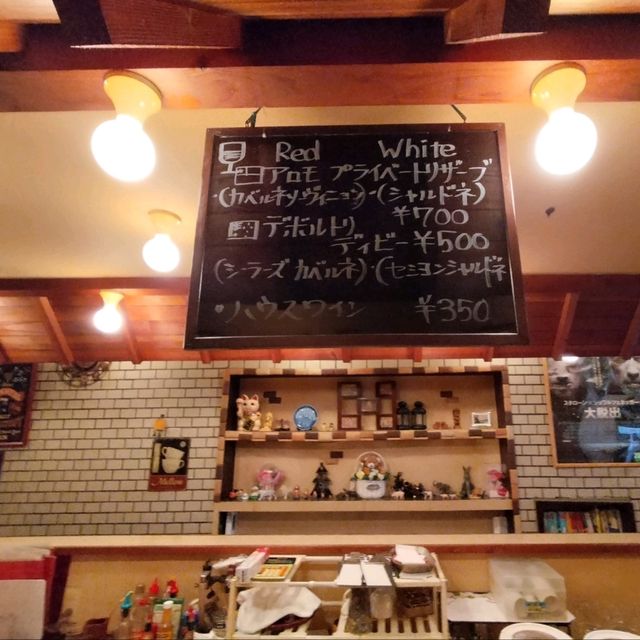 Red White
アロモ プライベートリザーブ
(カベルネソーヴィニヨン)・(シャルドネ)
¥700
デボルトリ
ディビー ¥500
(シーラーズ カベルネ)・(セミヨンシャルドネ)
・ハウスワイン ¥350
大脱出